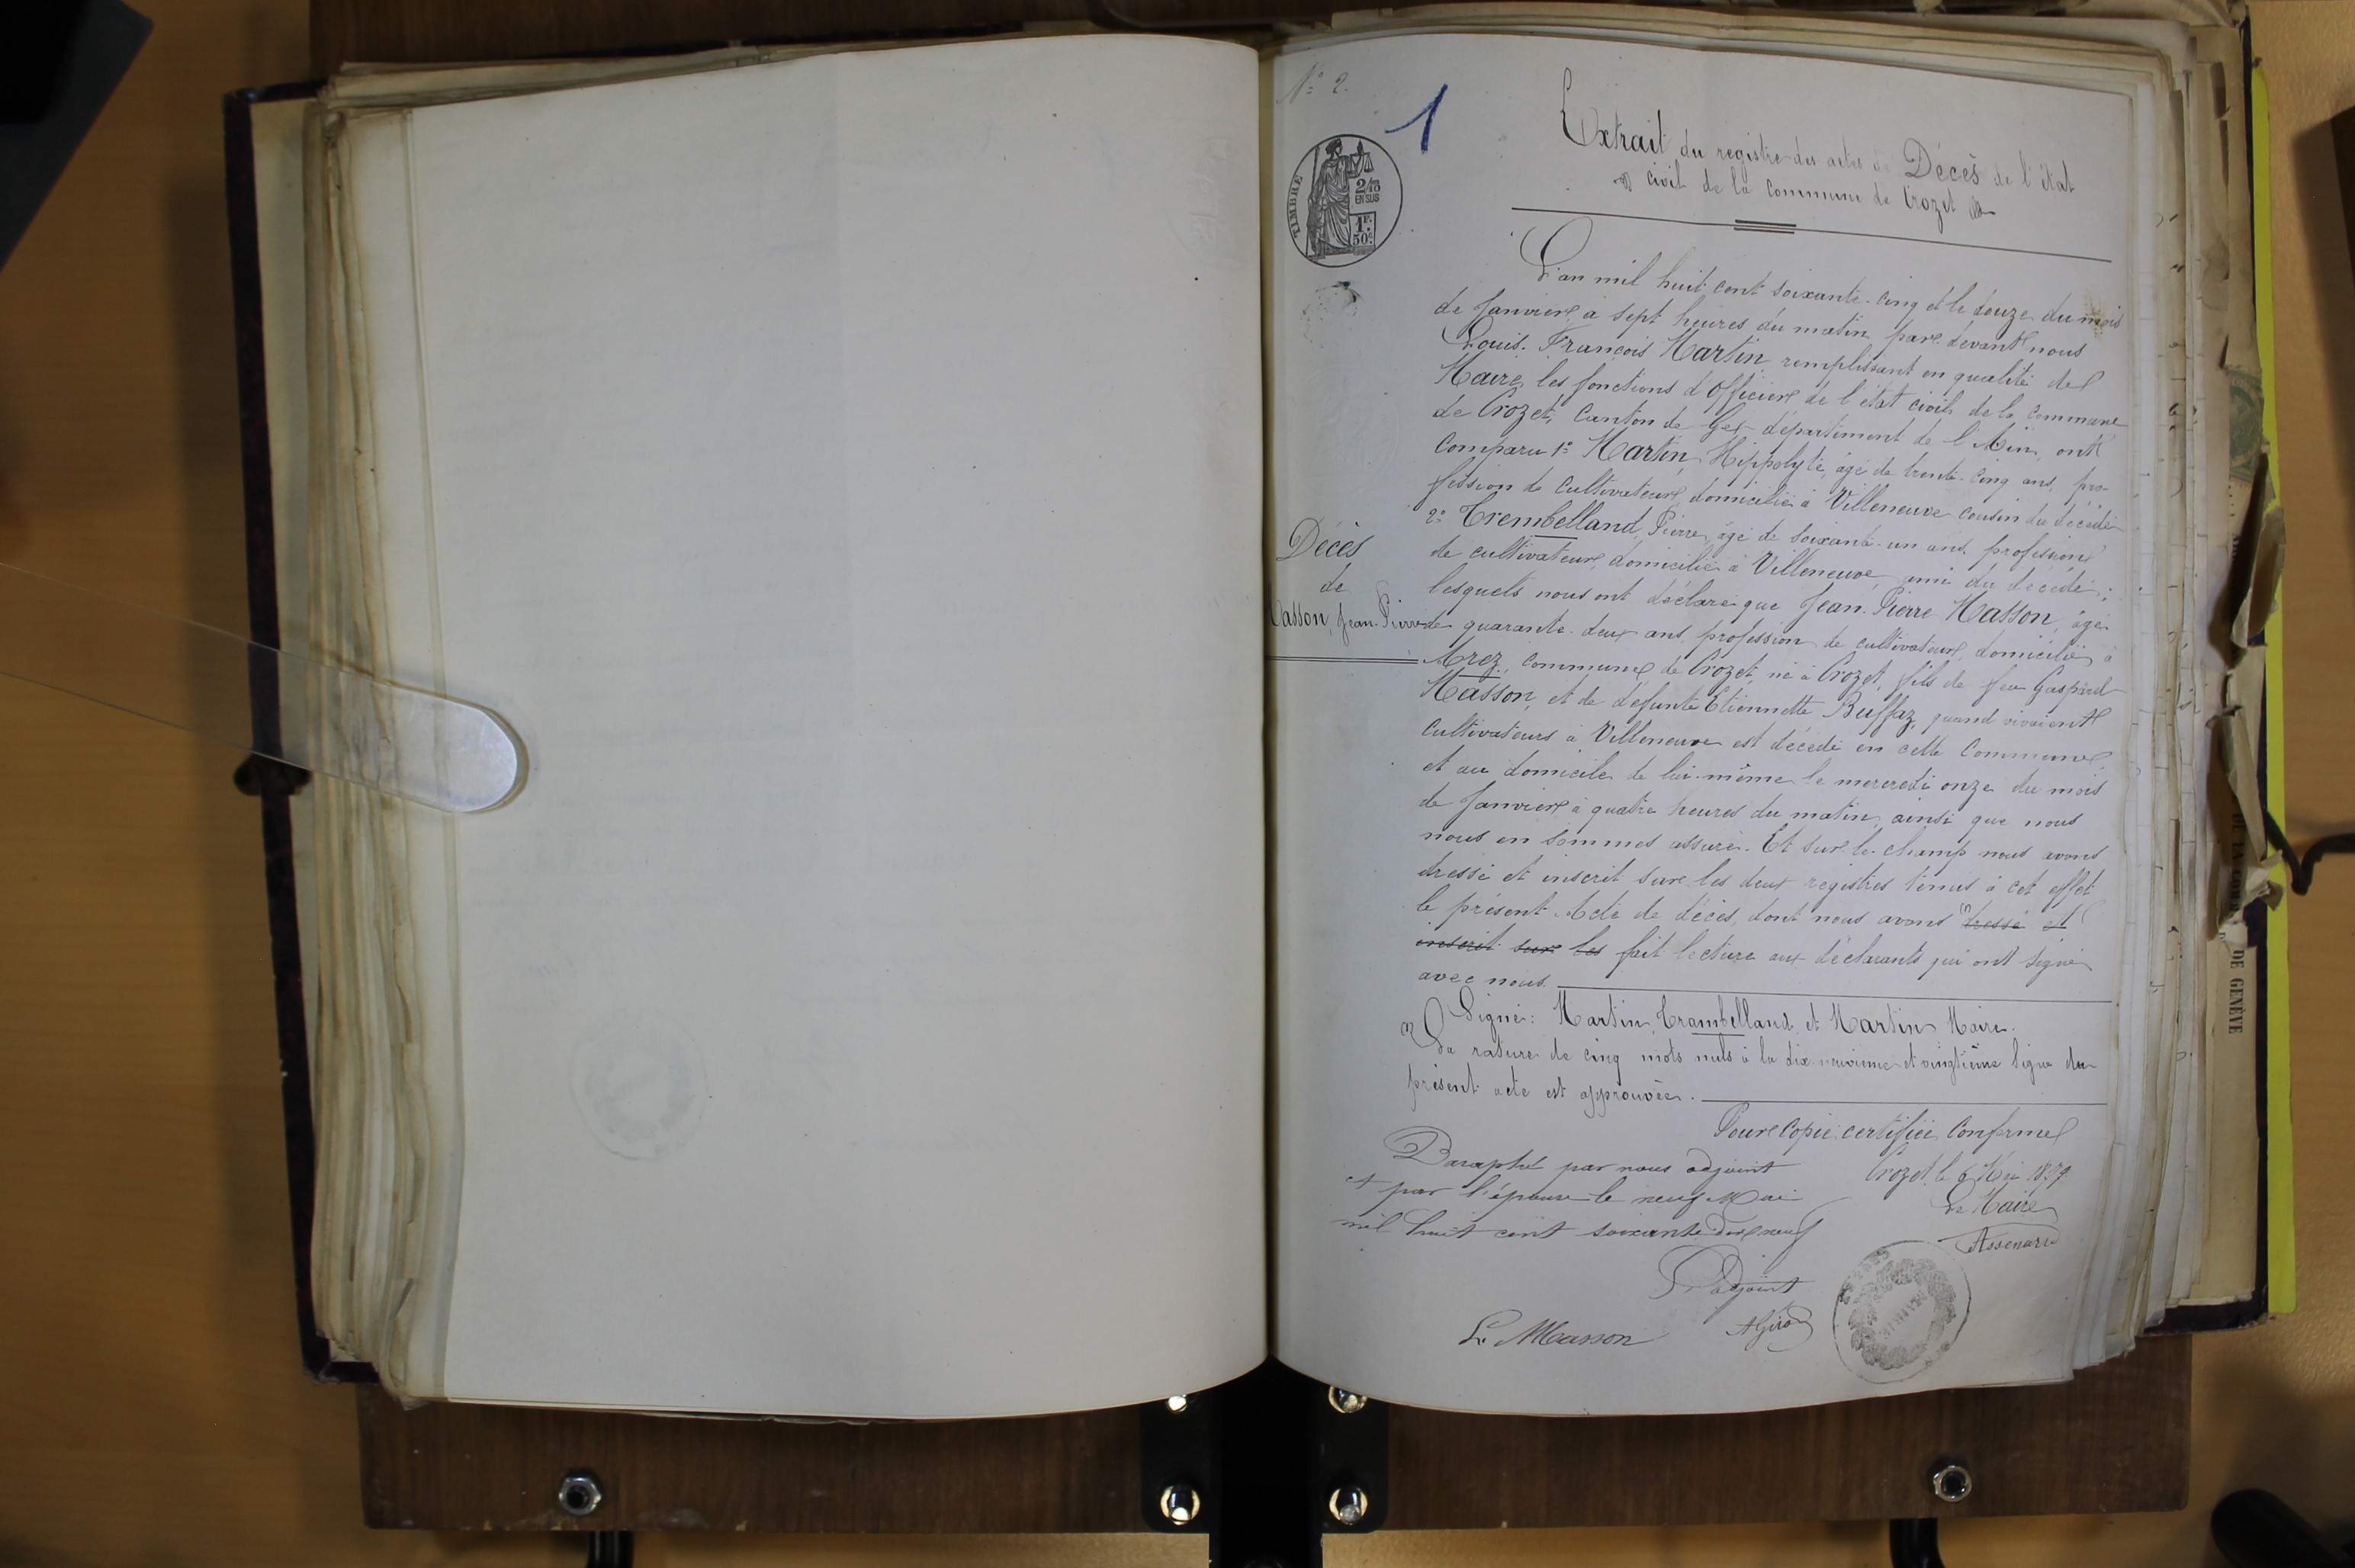 N° 2.
1
TIMBRE
2/10
EN SUS
1F.
50c
Extrait du registre des actes de Décès de l'état
civil de la commune de Crozet
L'an mil huit cent soixante-cinq et le douze du mois
de Janvier, à sept heures du matin, par devant nous
Louis-François Martin remplissant en qualité de
Maire, les fonctions d'Officier de l'état civil de la commune
de Crozet, Canton de Gex département de l'Ain, ont
comparu 1° Martin, Hippolyte, âgé de trente-cinq ans, pro-
fession de cultivateur, domicilié à Villeneuve cousin du décédé
2° Trembelland, Pierre, âgé de soixante-un ans, profession
de cultivateur, domicilié à Villeneuve, ami du décédé;
lesquels nous ont déclaré que Jean-Pierre Masson, âgé
Décès
de
Masson, Jean-Pierre
de quarante-deux ans, profession de cultivateur, domicilié à
Arez, commune de Crozet, né à Crozet, fils de feu Gaspard
Masson, et de défunte Etiennette Buffaz, quand vivaient
cultivateurs à Villeneuve est décédé en cette commune
et au domicile de lui-même le mercredi onze du mois
de Janvier à quatre heures du matin, ainsi que nous
nous en sommes assuré. Et sur le champ nous avons
dressé et inscrit sur les deux registres tenus à cet effet
le présent Acte de décès, dont nous avons dressé et
inscrit sur les fait lecture aux déclarants qui ont signé
avec nous.
Signé: Martin, Trambelland, et Martin Maire.
La rature de cinq mots nuls à la dix-neuvième et vingtième ligne du
présent acte est approuvée.
Pour copie certifiée conforme
Crozet, le 6 Mai 1879
Le Maire
Paraphé par nous adjoint
et par l'épouse le neuf Mai
mil huit cent soixante dix neuf
L'adjoint
L. Masson
DE GENÈVE